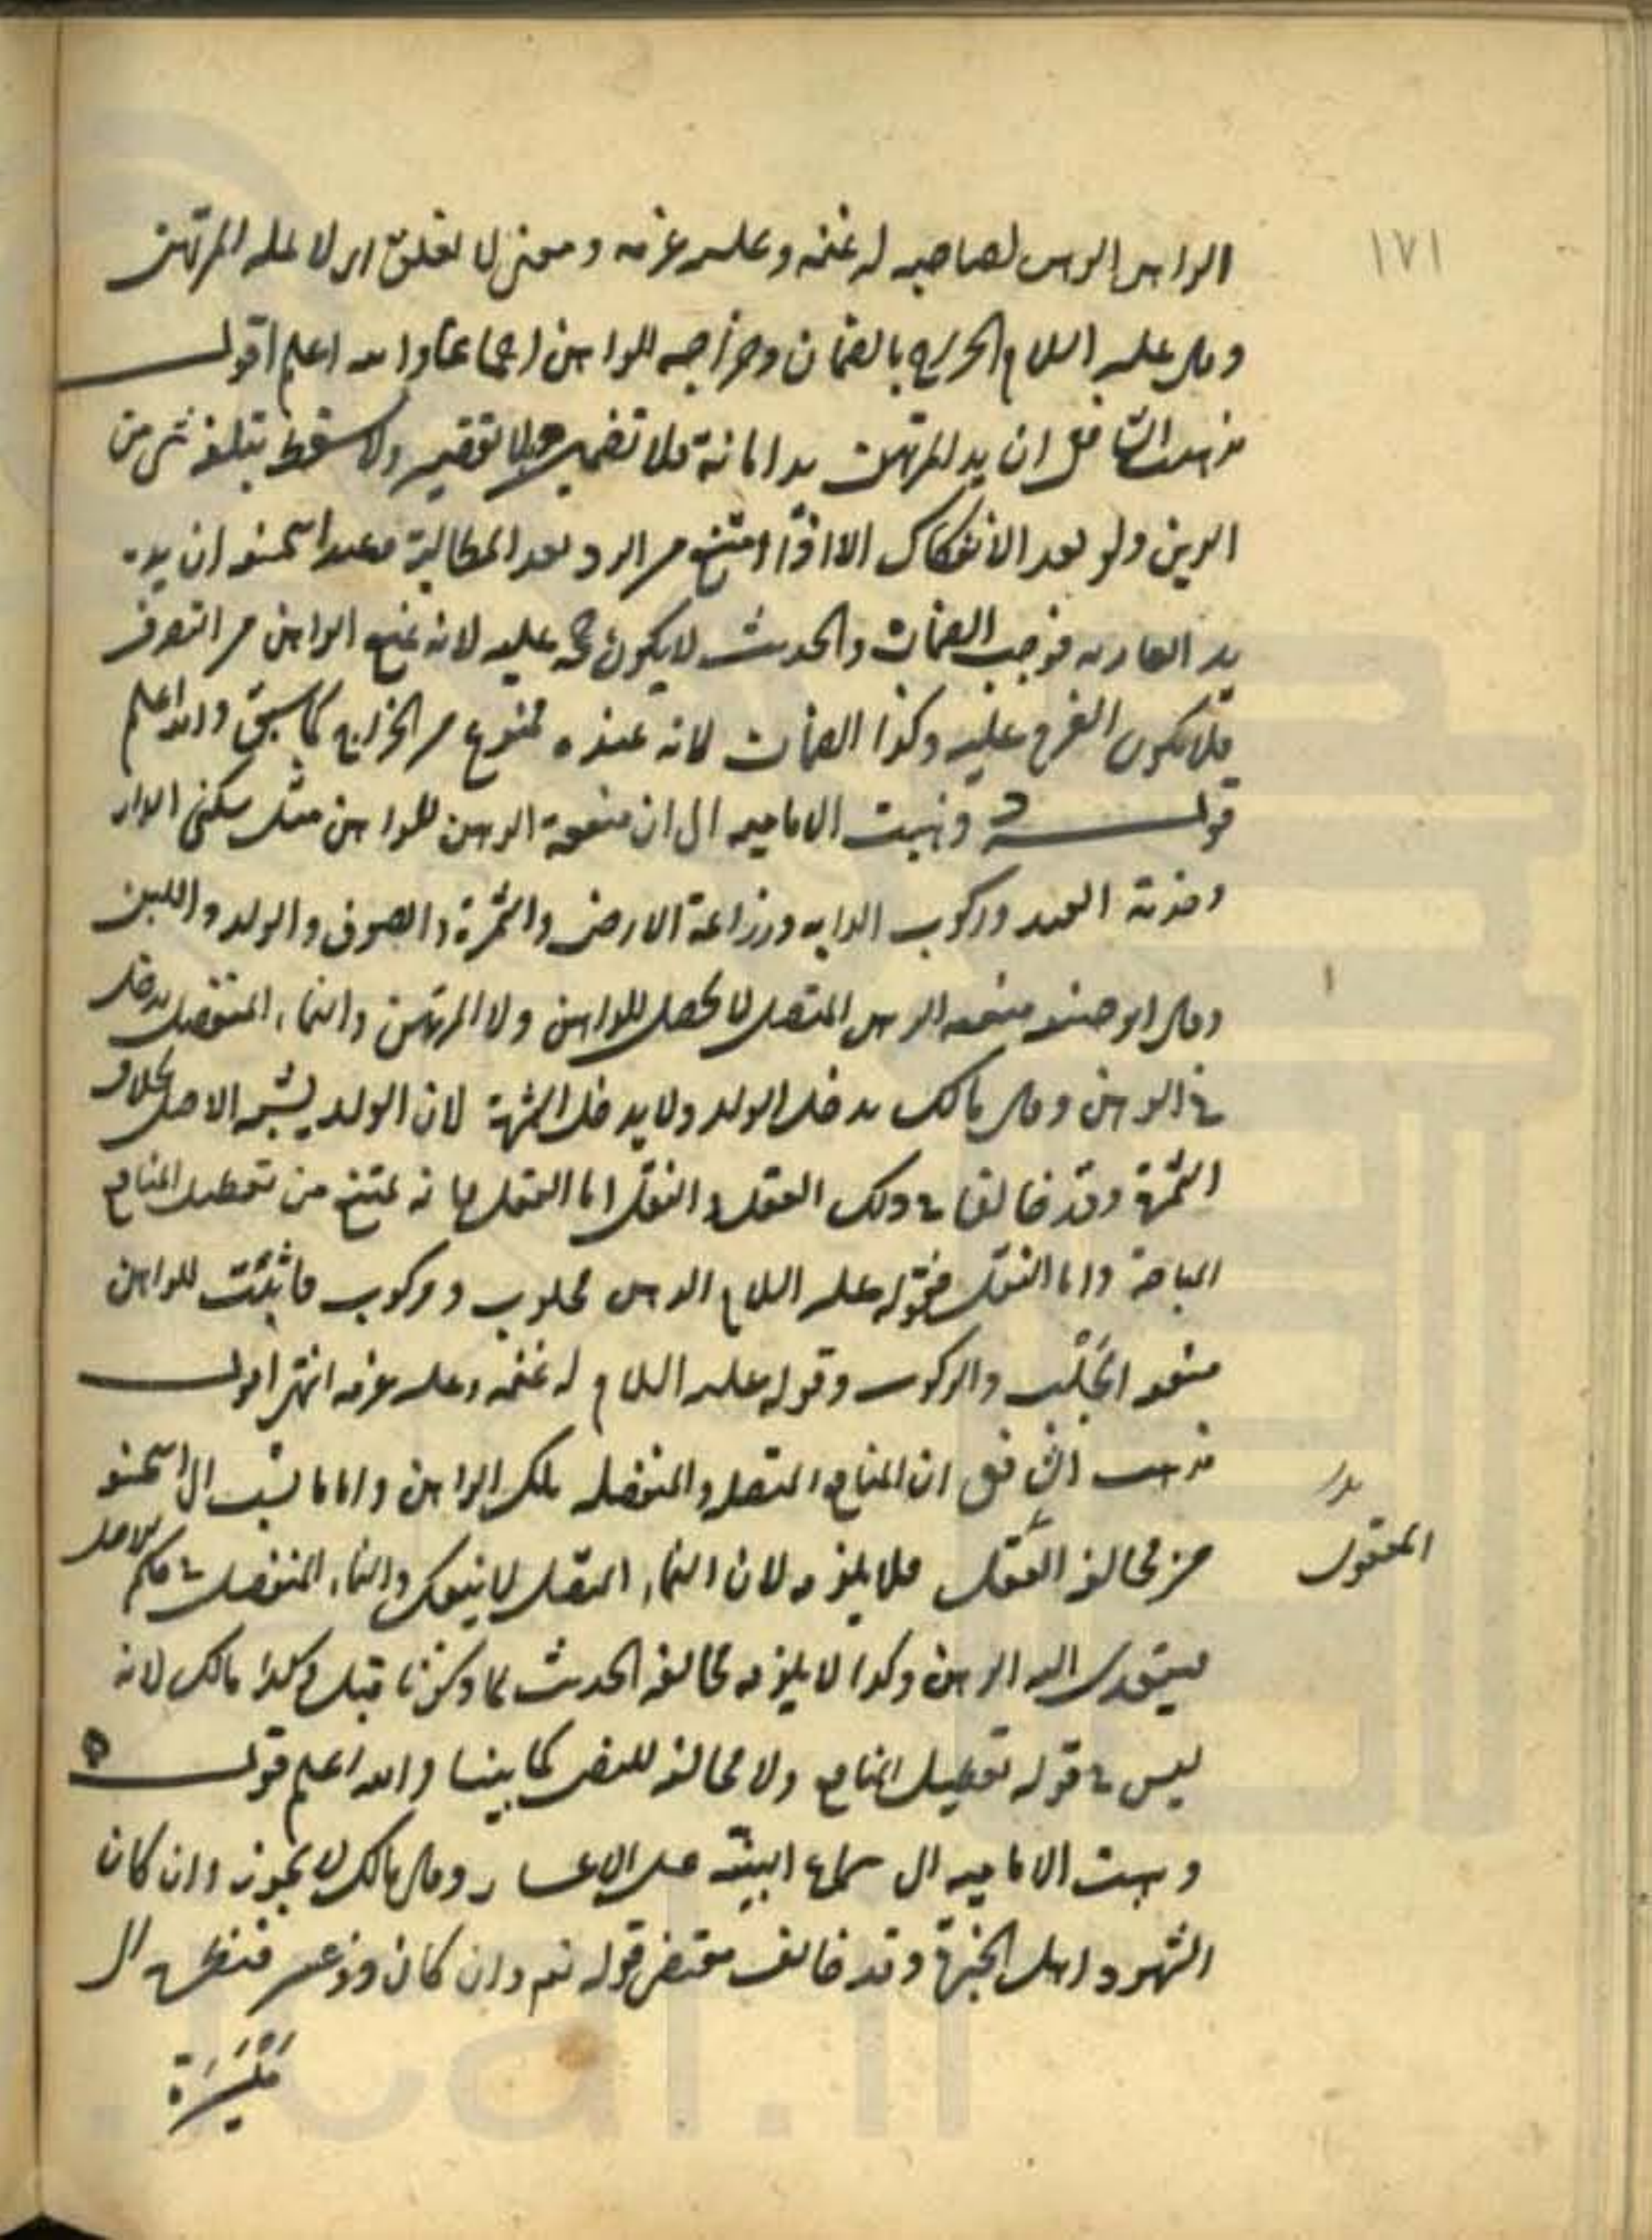 ١٧١
الراهن الرهن لصاحبه له غنمه وعليه غرمه ومعنى لا يغلق اى لا يملكه المرتهن
وقال عليه السلام الخراج بالضمان وخراجه للراهن اجماعا والله اعلم اقول
مذهب الشافعى ان يد المرتهن يد امانة فلا تضمين بلا تقصير ولا يسقط بتلفه شى من
الدين ولو بعد الانفكاك الا اذا امتنع من الرد بعد المطالبة وعند ابى حنيفه ان يده
يد العاريه فوجب الضمان والحديث لا يكون حجة عليه لانه يمنع الراهن من التصرف
فلا يكون الغرم عليه وكذا الضمان لانه عنده ممنوع من الخراج كما سبق والله اعلم
قوله ذهبت الاماميه الى ان منفعة الرهن للراهن مثل سكنى الدار
وخدمة العبد وركوب الدابه وزراعة الارض والثمرة والصوف والولد واللبن
وقال ابو حنيفه منفعه الرهن المتصل لا يحصل للراهن ولا المرتهن والنماء المنفصل يدخل
فى الرهن وقال مالك يدخل الولد ولا يدخل الثمرة لان الولد يشبه الاصل بخلاف
الثمرة وقد خالفا فى ذلك العقل والنقل اما العقل فانه يمتنع من تعطيل المنافع
المباحة واما النقل فقوله عليه السلام الرهن محلوب ومركوب فاثبت للراهن
منفعه الحلب والركوب وقوله عليه السلام له غنمه وعليه غرمه انتهى اقول
مذهب الشافعى ان المنافع المتصله والمنفصله ملك الراهن واما ما نسب الى ابى حنيفه
من مخالفه العقل فلا يلزمه لان النماء المتصل لا ينفك والنماء المنفصل فى حكم الاصل
بدل
المعقول
فيتعدى اليه الرهن وكذا لا يلزمه مخالفه الحديث لما ذكرنا قبل وكذا مالك لانه
ليس فى قوله تعطيل المنافع ولا مخالفه للنص كما بينا والله اعلم قوله
ذهبت الاماميه الى سماع البينة على الاعسار وقال مالك لا يجوز وان كان
الشهود اهل الخبرة وقد خالف مقتضى قوله تع وان كان ذو عسرة فنظرة الى
مَيْسَرَة